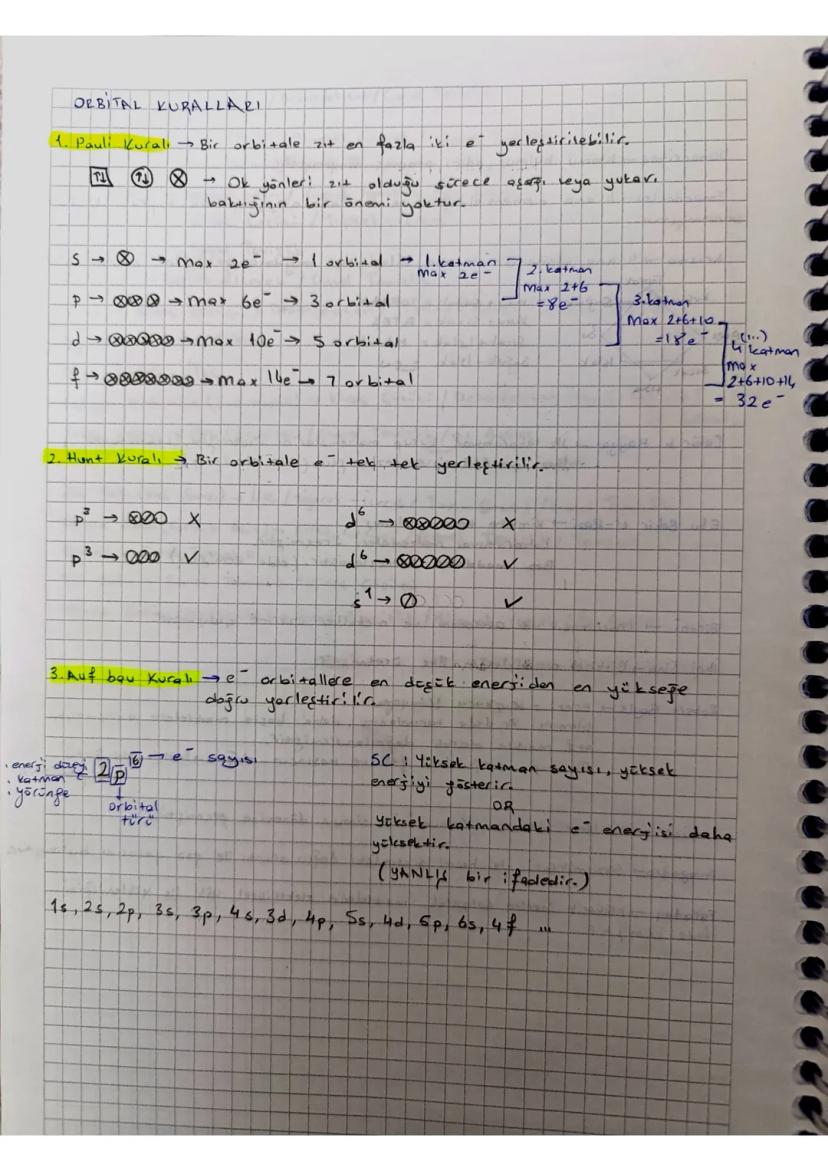 ORBİTAL KURALLARI
1. Pauli Kuralı → Bir orbitale zıt en fazla iki e⁻ yerleştirilebilir.
→ Ok yönleri zıt olduğu sürece aşağı veya yukarı
baktığının bir önemi yoktur.
s → → max 2e⁻ → 1 orbital → 1.katman
max 2e⁻
2. katman
max 2+6
=8e⁻
p → → max 6e⁻ → 3 orbital
3.katman
max 2+6+10
=18e⁻
d → → max 10e⁻ → 5 orbital
(...)
4 katman
max
2+6+10+14
= 32e⁻
f → → max 14e⁻ → 7 orbital
2. Hunt Kuralı → Bir orbitale e⁻ tek tek yerleştirilir.
p³ → X
d⁶ → X
p³ → ✓
d⁶ → ✓
s¹ → ✓
3. Auf bau Kuralı → e⁻ orbitallere en düşük enerjiden en yükseğe
doğru yerleştirilir.
• enerji düzeyi
• katman
• yörünge
2p⁶ → e⁻ sayısı
orbital
türü
SC : Yüksek katman sayısı, yüksek
enerjiyi gösterir.
OR
Yüksek katmandaki e⁻ enerjisi daha
yüksektir.
(YANLIŞ bir ifadedir.)
1s, 2s, 2p, 3s, 3p, 4s, 3d, 4p, 5s, 4d, 5p, 6s, 4f ...